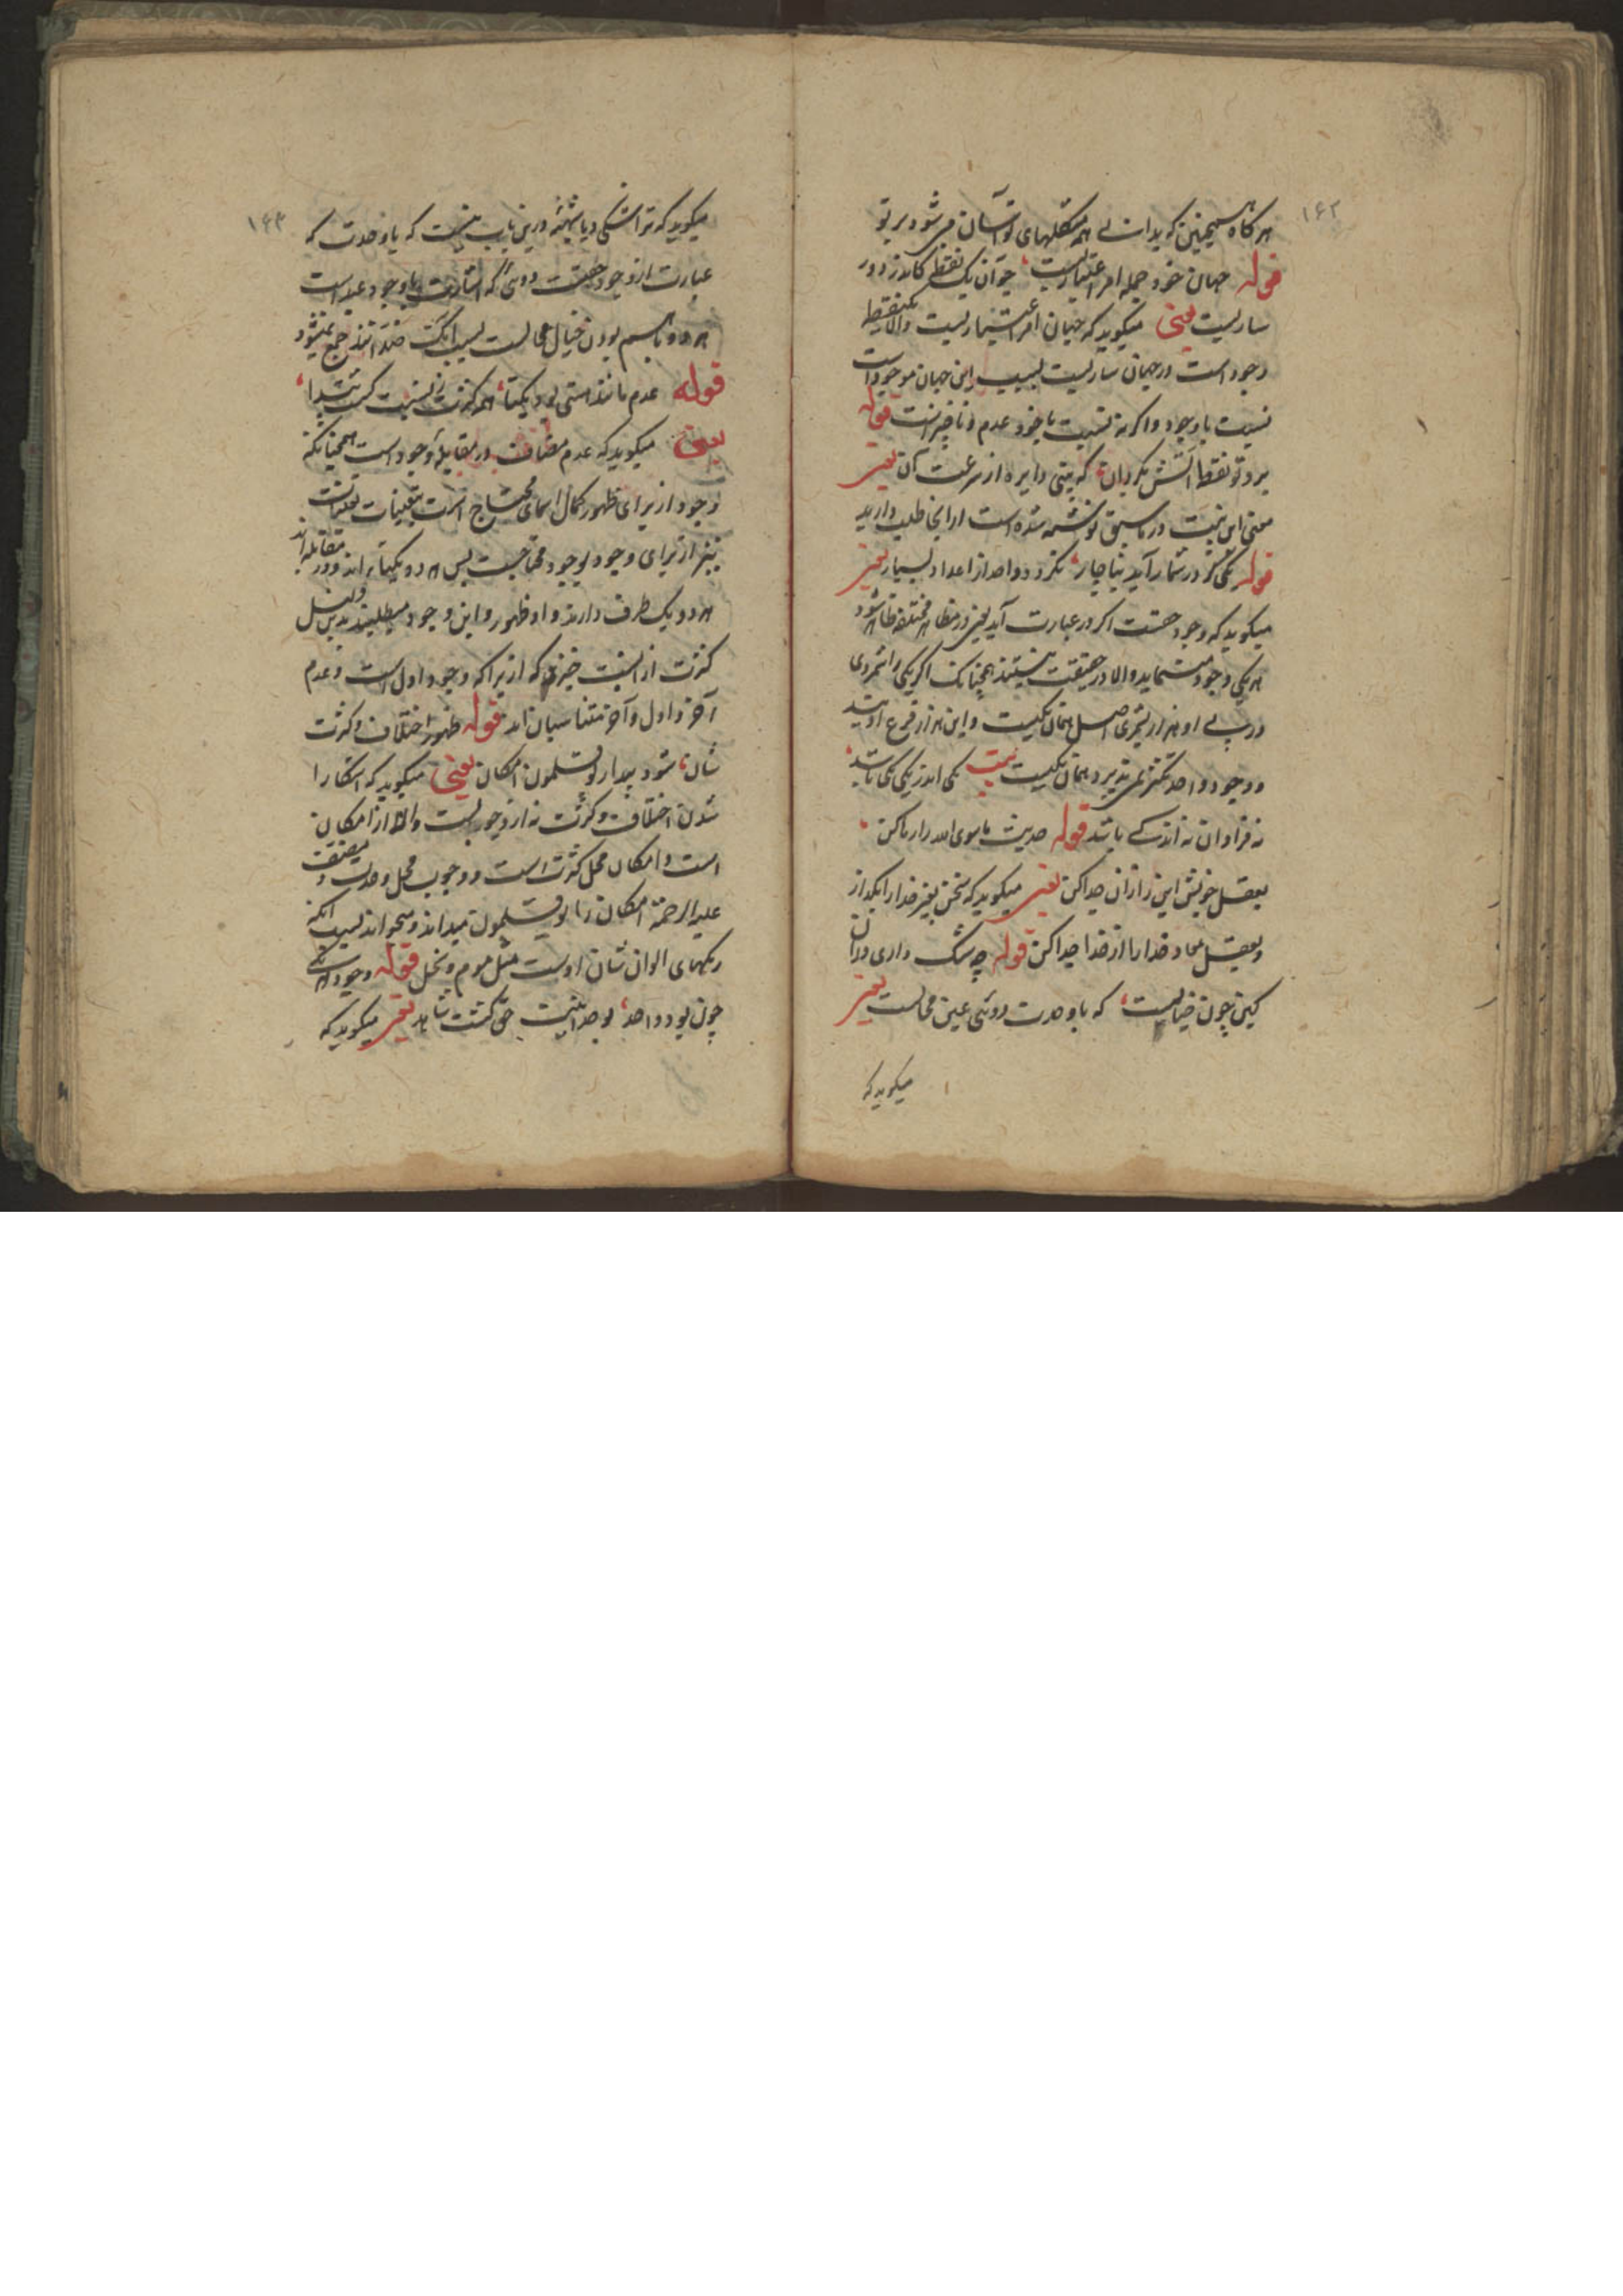 ۱۶۲
هرکاه همچنین که بدانی همه مشکلهای تو آسان می شود بر تو
قوله جهان خود جمله امر اعتباریست چو آن یک نقطه کاندر دور
ساریست یعنی میکوید که جهان امر اعتباریست والا یک نقطه
وجود است در جهان ساریست بسبب این جهان موجود است
نسبت با وجود و اکرنه نسبت با خود عدم و ناچیز است قوله
برو تو نقطه آتش بکردان که بینی دایره از سرعت آن یعنی
معنی این بیت در ما سبق نوشته شده است از انجا طلب دارید
قوله یکی کر در شمار آید بناچار نکردد واحد از اعداد بسیار یعنی
میکوید که وجود حقست اکر در عبارت آید یعنی در مظاهر مختلفه ظاهر شود
هر یکی وجود مینماید والا در حقیقت نیستند همچنانک اکر یکی را شمردی
در پی او هزار بشمری اصل همان یکیست و این هزار فرع اویند
و وجود واحد تکثر نمی پذیرد همان یکیست بیت یکی اندر یکی یکی باشد
نه فراوان نه اندکی باشد قوله حدیث ماسوی الله را رها کن
بعقل خویش این را زان جدا کن یعنی میکوید که سخن بغیر خدا را بگذار
و بعقل معاد خدا را از خدا جدا کن قوله چه شک داری در ان
کین چون خیالیست که با وحدت دوئی عین محالست یعنی
میکوید که
۱۶۳
میکوید که ترا شکی و یا شبهۀ درین باب نیست که با وحدت که
عبارت از وجود حقست دوئی که اشارت با وجود عبد است
هر دو باهم بودن خیال محالست بسبب انک ضد انند جمع نمیشود
قوله عدم مانند هستی بود یکتا همه کثرت ز نسبت کشت پیدا
یعنی میکوید که عدم مضاف در مقابلۀ وجود است همچنانکه
وجود از برای ظهور کمال اسمای محتاج است بتعینات تعینات
نیز از برای وجود بوجود محتاجست پس هر دو یکتاء اند و در مقابله اند
هر دو یک طرف دارند و او ظهور و این وجود میطلبند بدین دلیل
کثرت از نسبت خیزد که از براکه وجود اول است و عدم
آخر و اول و آخر متناسبان اند قوله ظهور اختلاف و کثرت
شان شود پیدا ز بوقلمون امکان یعنی میکوید که اشکارا
شدن اختلاف و کثرت نه از وجوبست والا از امکان
است و امکان محل کثرت است و وجوب محل وحدت و مصنف
علیه الرحمة امکان را بوقلمون میداند و میخواند بسبب انکه
رنکهای الوان شان اوست مثل موم و نخل قوله وجود هر یکی
چون بود واحد بوحدانیت حق کشت شاهد یعنی میکوید که